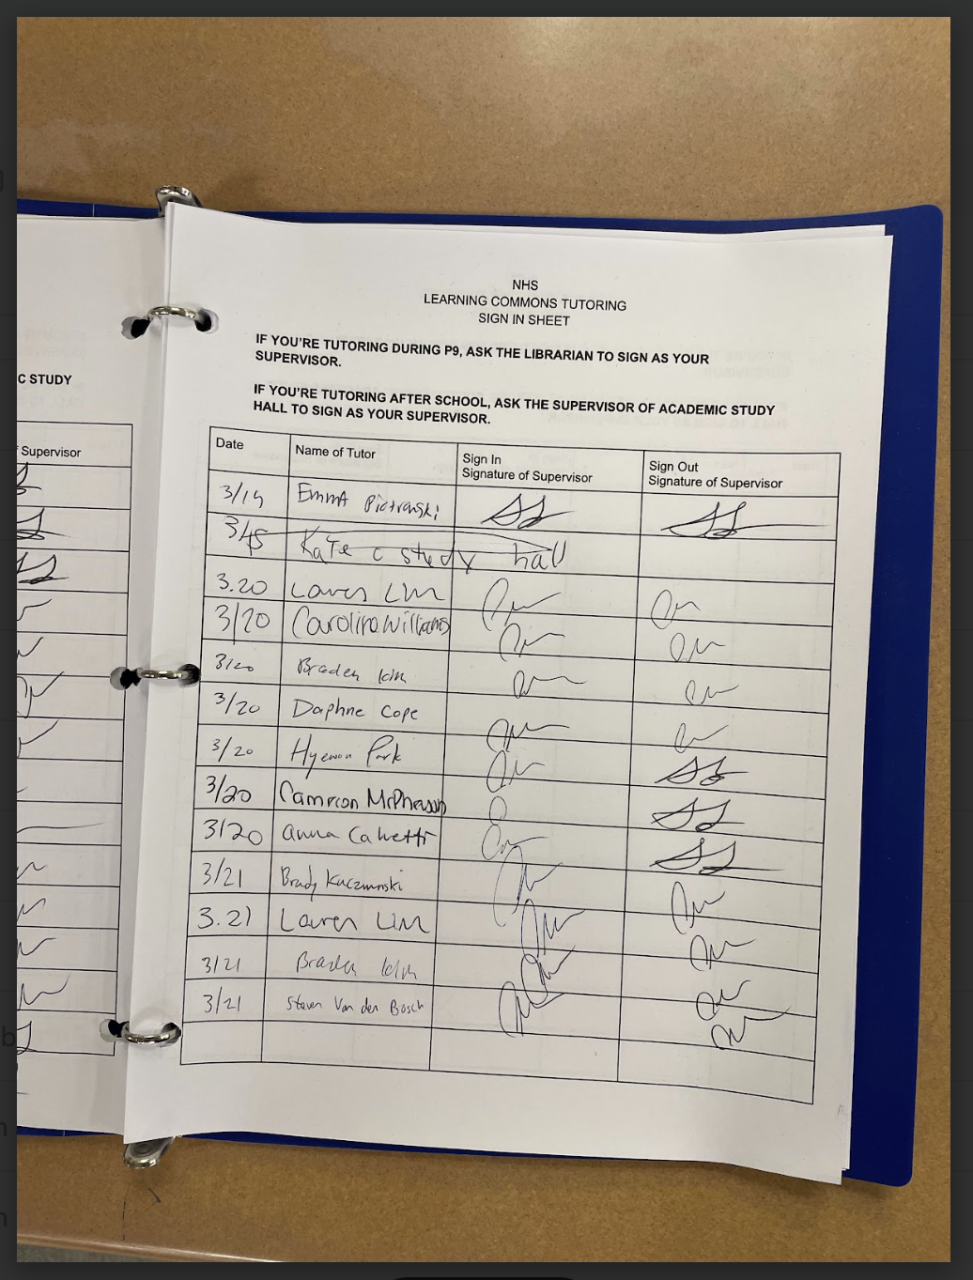 NHS
LEARNING COMMONS TUTORING
SIGN IN SHEET
IF YOU'RE TUTORING DURING P9, ASK THE LIBRARIAN TO SIGN AS YOUR
SUPERVISOR.
IF YOU'RE TUTORING AFTER SCHOOL, ASK THE SUPERVISOR OF ACADEMIC STUDY
HALL TO SIGN AS YOUR SUPERVISOR.
C STUDY
Supervisor
Date Name of Tutor Sign In Sign Out
Signature of Supervisor Signature of Supervisor
3/19 Emma Piotrowski
Kate C study hall
3.20 Lauren Lim
3/20 Carolina Williams
3/20 Braden Kim
3/20 Daphne Cope
3/20 Hyewon Park
3/20 Cameron McPherson
3/20 Anna Calvetti
3/21 Brady Kaczmarski
3.21 Lauren Lim
3/21 Braden Kim
3/21 Steven Van den Bosch